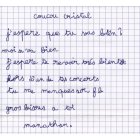 coucou cristal
j'espère que tu vas bien ?
moi sa va bien
j'espère te revoir très bientôt
lors d'un de tes concerts
tu me manques mon
gros bisous a toi
manathan.